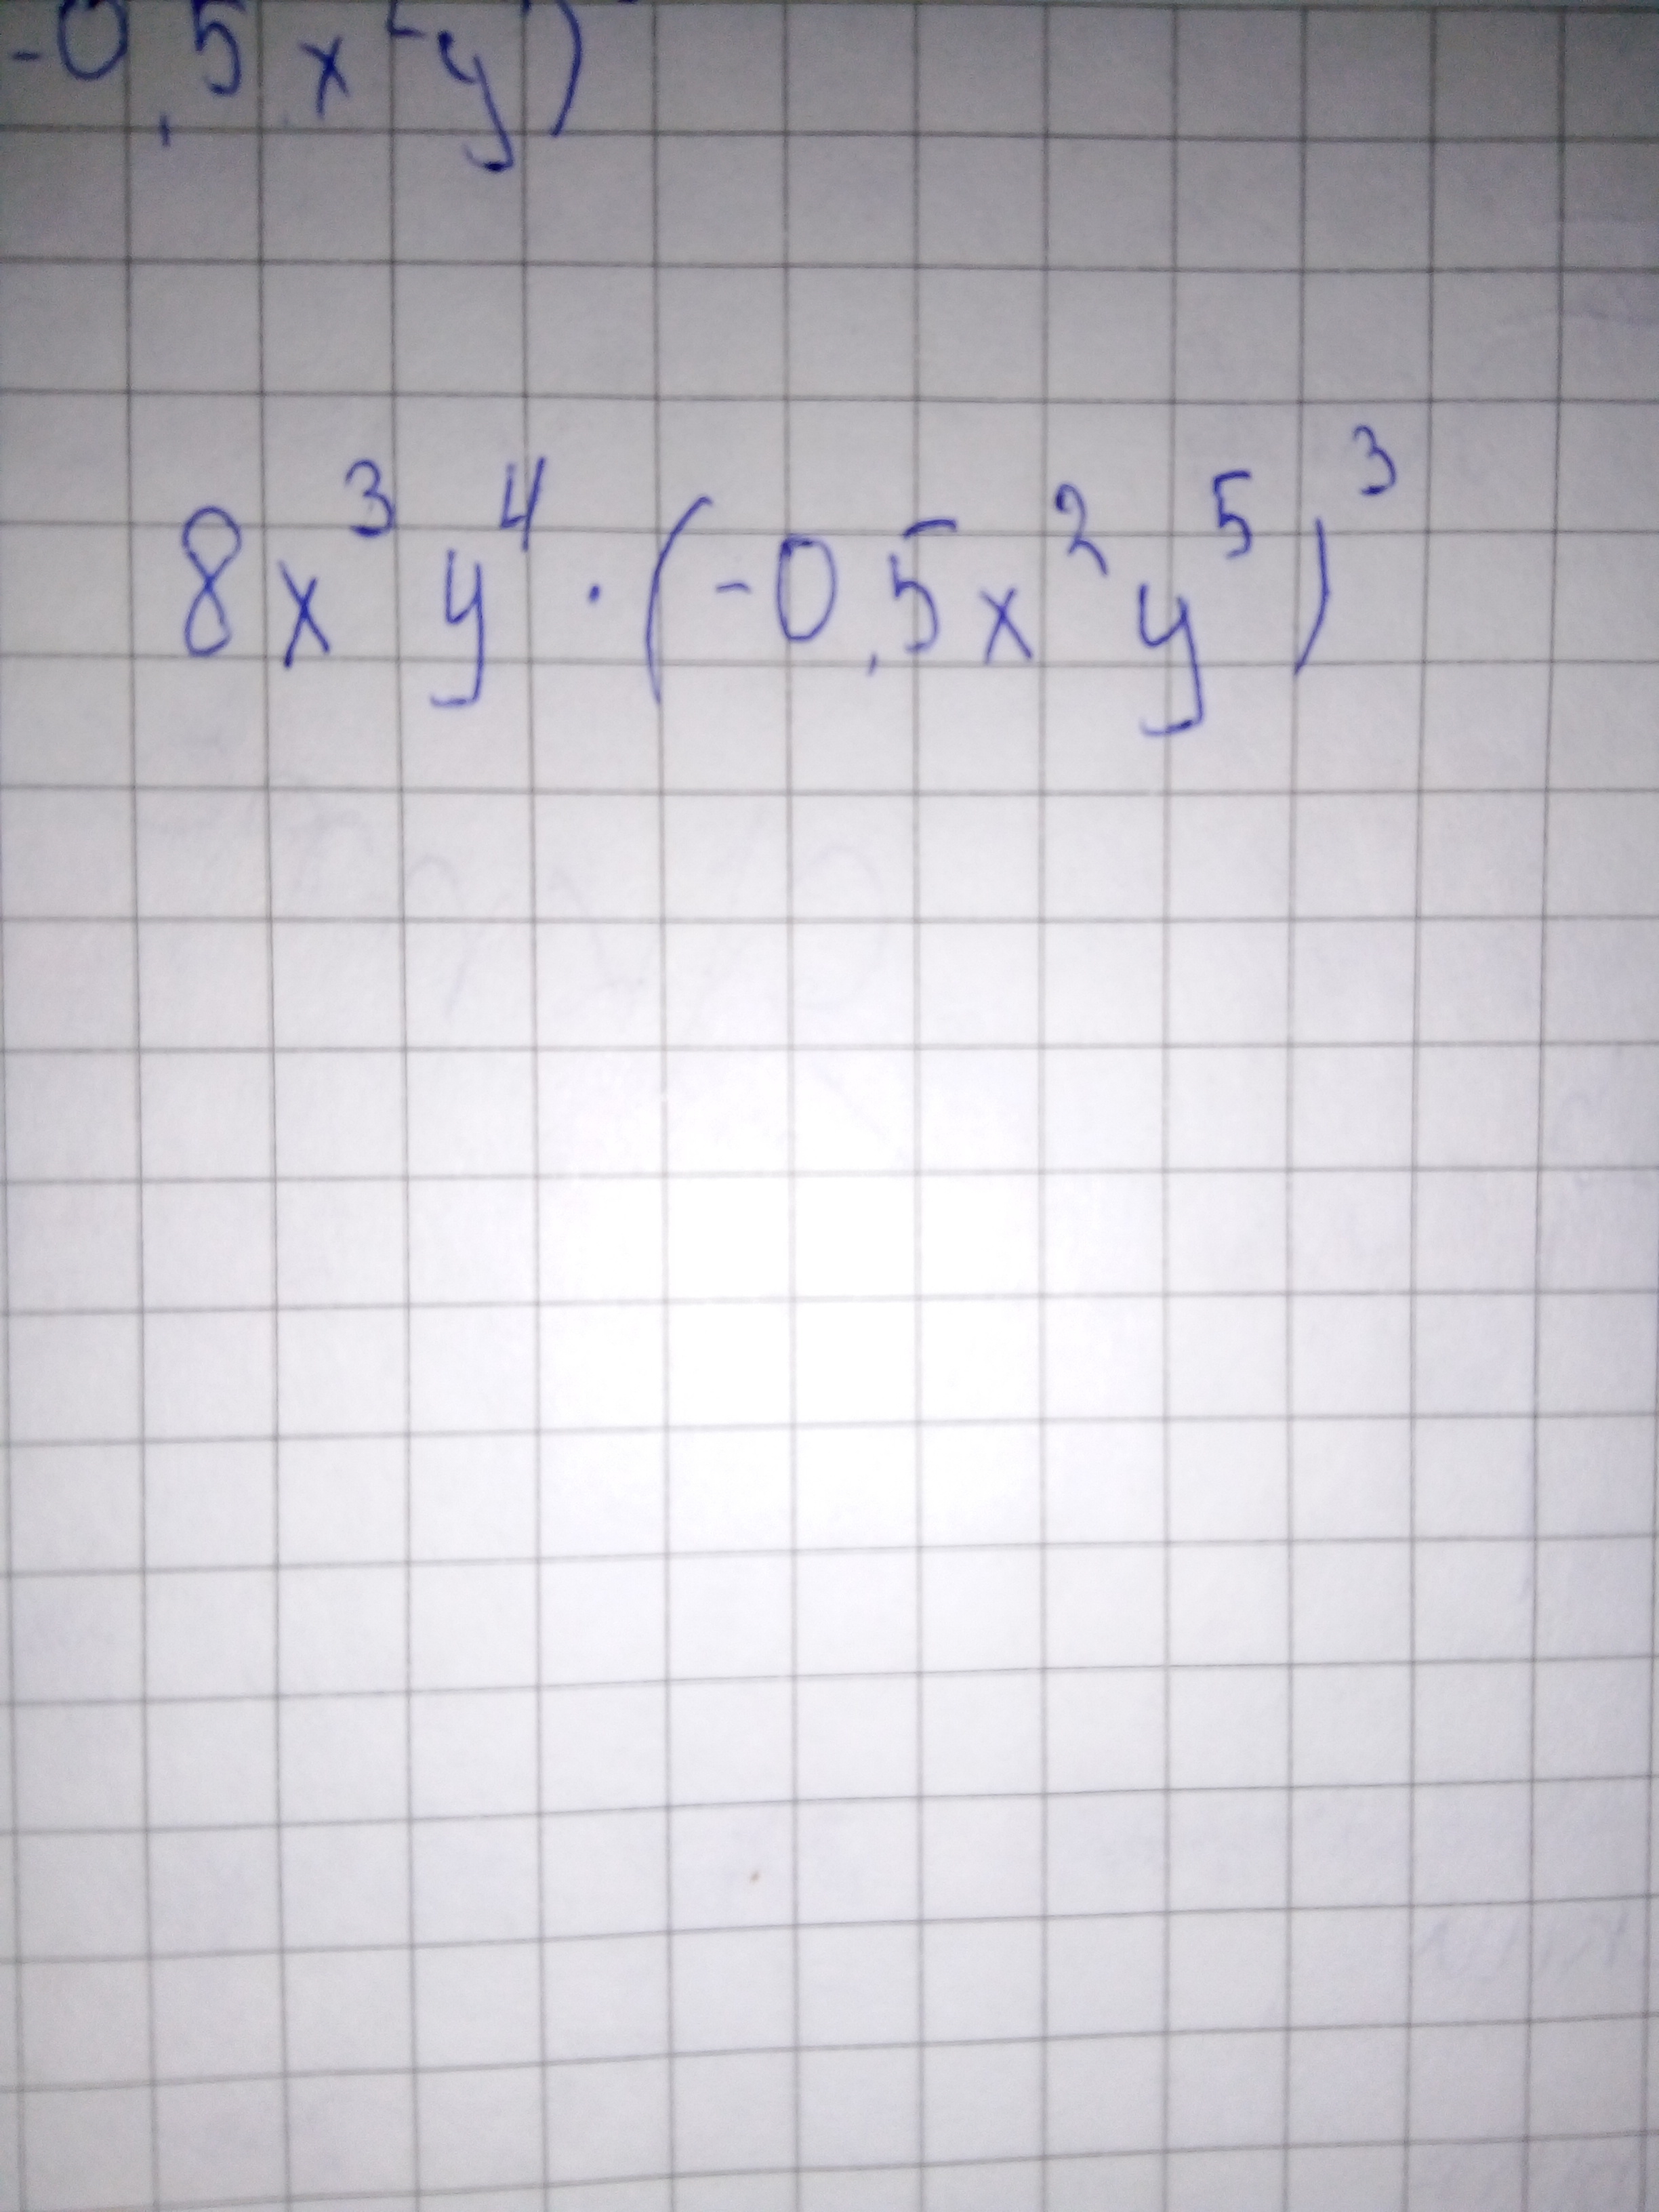 -0,5x²y)
8x³y⁴·(-0,5x²y⁵)³